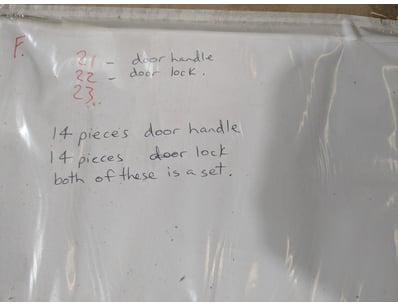 F.
21 - door handle
22 - door lock.
23
14 pieces door handle
14 pieces door lock
both of these is a set.